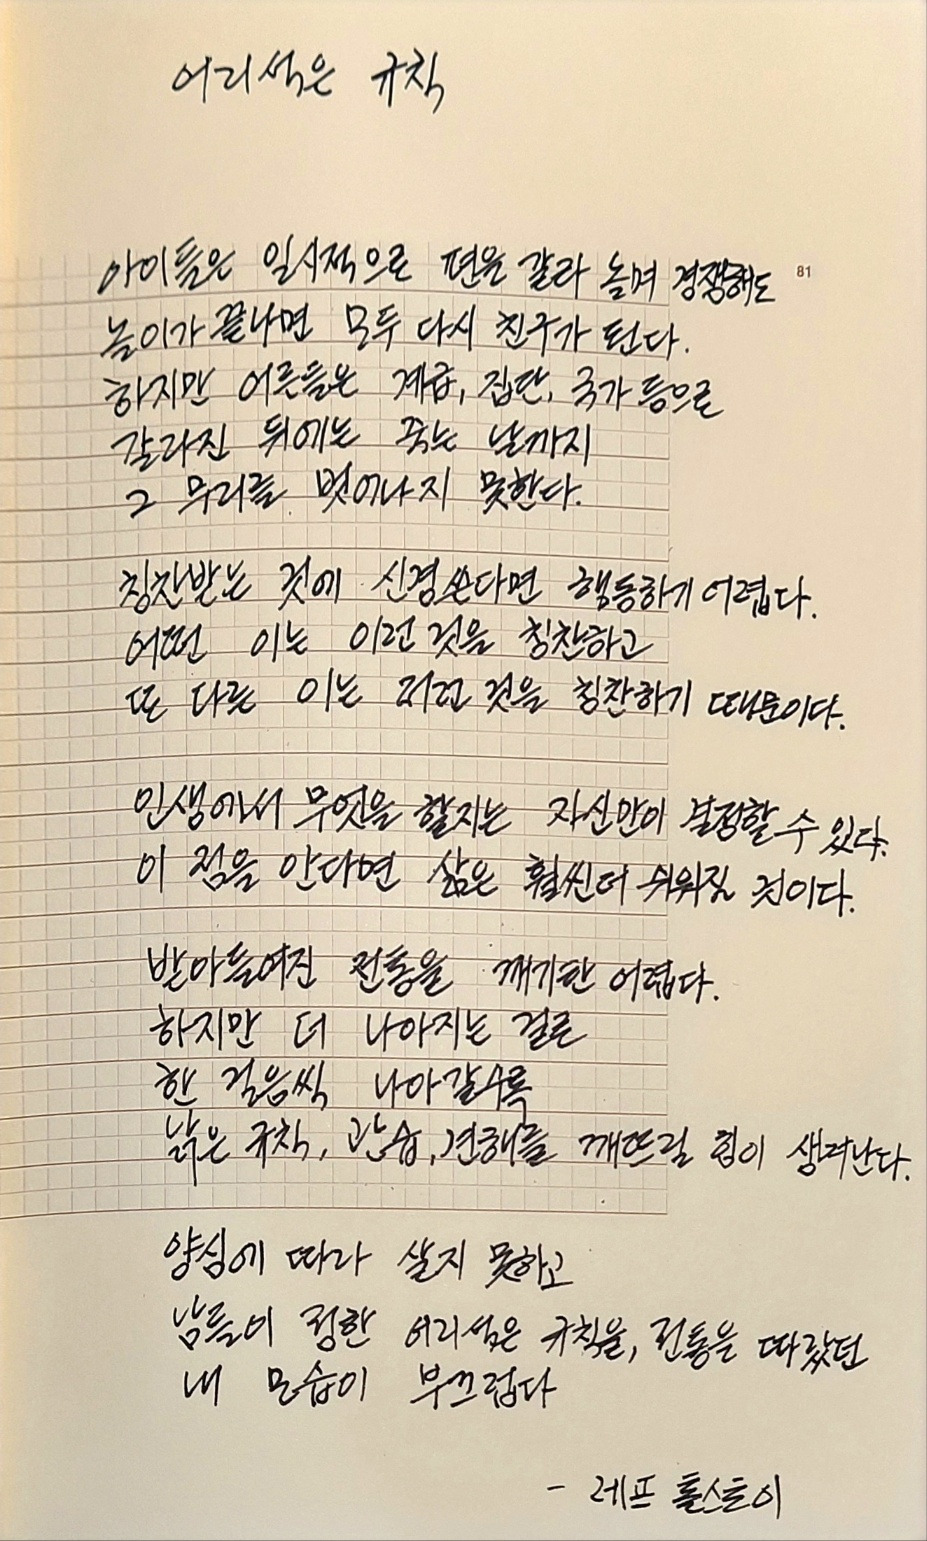 어리석은 규칙
아이들은 일시적으로 편을 갈라 놀며 경쟁해도
81
놀이가 끝나면 모두 다시 친구가 된다.
하지만 어른들은 계급, 집단, 국가 등으로
갈라진 뒤에는 죽는 날까지
그 무리를 벗어나지 못한다.
칭찬받는 것에 신경쓴다면 행동하기 어렵다.
어떤 이는 이런 것을 칭찬하고
또 다른 이는 저런 것을 칭찬하기 때문이다.
인생에서 무엇을 할지는 자신만이 결정할 수 있다.
이 점을 안다면 삶은 훨씬 더 쉬워질 것이다.
받아들여진 전통을 깨기란 어렵다.
하지만 더 나아지는 길로
한 걸음씩 나아갈수록
낡은 규칙, 관습, 견해를 깨뜨릴 힘이 생겨난다.
양심에 따라 살지 못하고
남들이 정한 어리석은 규칙을, 전통을 따랐던
내 모습이 부끄럽다
- 레프 톨스토이